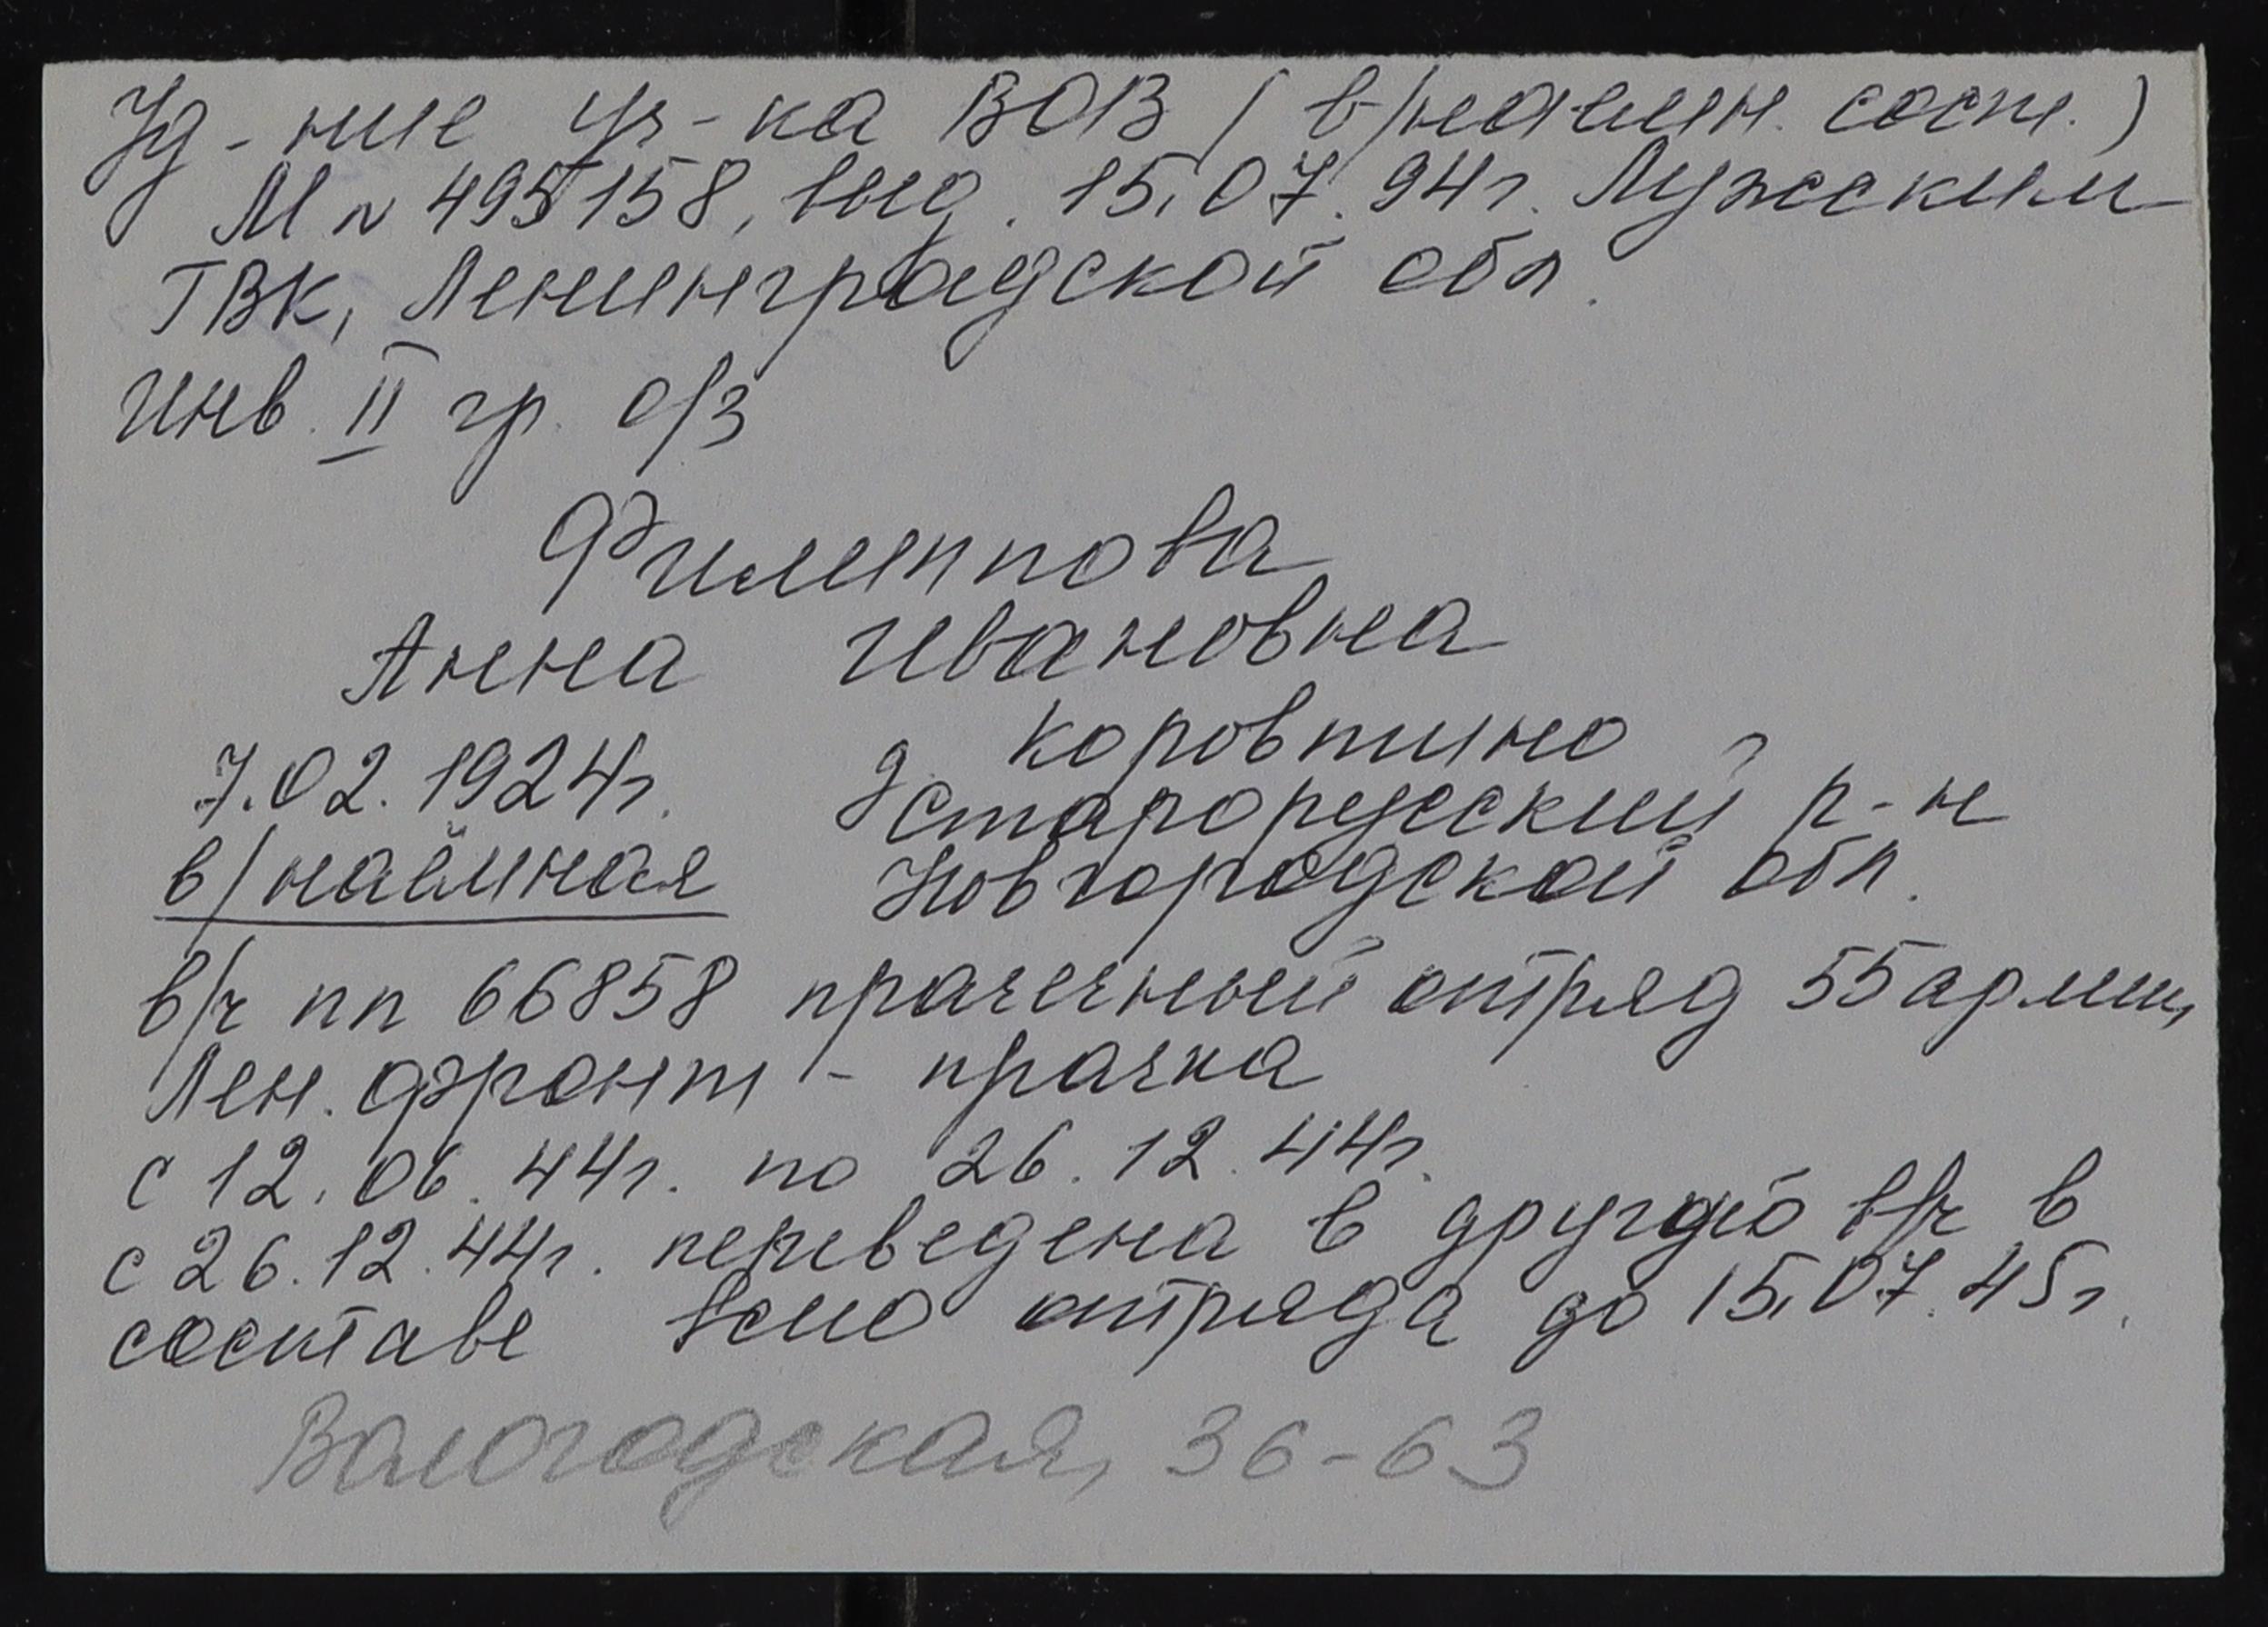 Уд-ние уч-ка ВОВ (в/наёмн. сост.)
М № 495158, выд. 15.07.94г. Лужским
ГВК, Ленинградской обл.
Инв. II гр. о/з
Филиппова
Анна Ивановна
7.02.1924г. д. Коровитчино
в/наёмная Старорусский р-н
Новгородской обл.
в/ч пп 66858 прачечный отряд 55 армии,
Лен. фронт - прачка
с 12.06.44г. по 26.12.44г.
с 26.12.44г. переведена в другую в/ч в
составе отряда до 15.07.45г.
Вологодская, 36-63